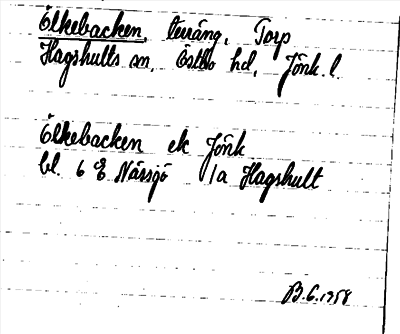 Ölkebacken, terräng, Torp
Hagshults sn, Östbo hd, Jönk. l.
Ölkebacken ek Jönk
bl. 6 E Nässjö 1a Hagshult
B.G. 1958